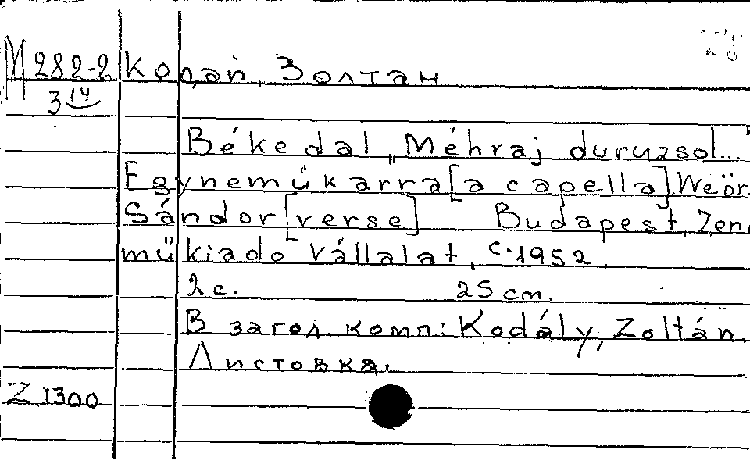 M 282-2 Кодаи, Золтан
3 14
Békedal „Méhraj duruzsol...
Egyneműkarra [a capella] Weör
Sándor [verse] Budapest, Zene
műkiado Vállalat, c. 1952.
2 с. 25 cm.
В загол. комп: Kodály, Zoltán.
Листовка.
Z 1300